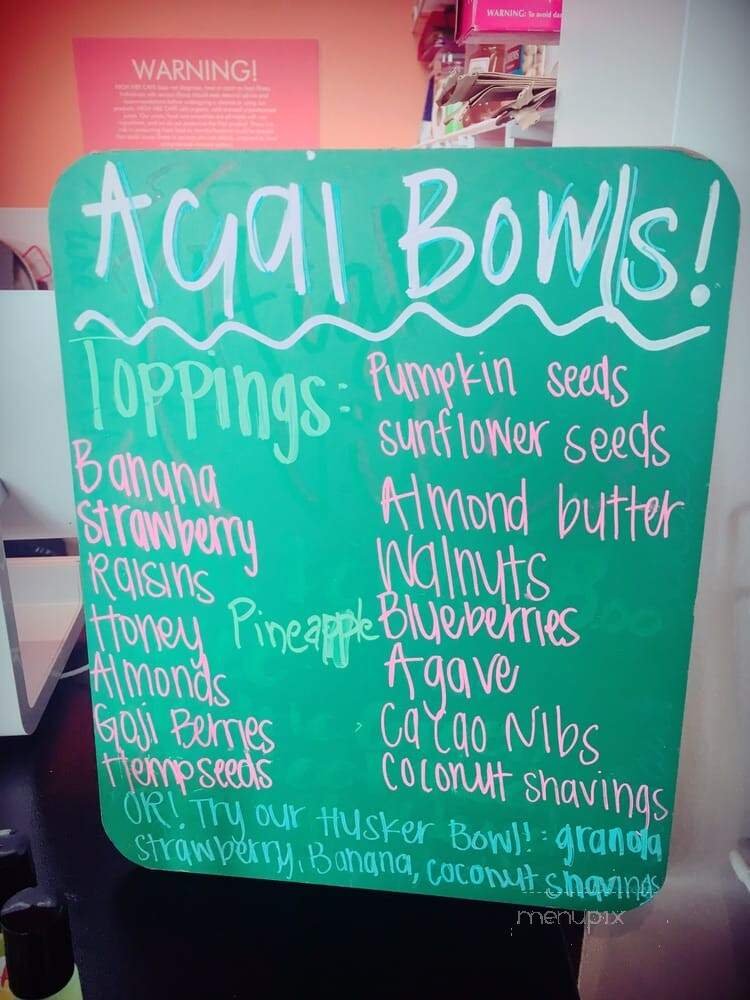 WARNING!
WARNING: To avoid
Acai Bowls!
Toppings:
Banana
Strawberry
Raisins
Honey
Almonds
Goji Berries
Hempseeds
Pineapple
Pumpkin seeds
sunflower seeds
Almond butter
Walnuts
Blueberries
Agave
CaCao Nibs
Coconut shavings
OR! Try our Husker Bowl!: granola
strawberry, Banana, coconut shavings
menupix